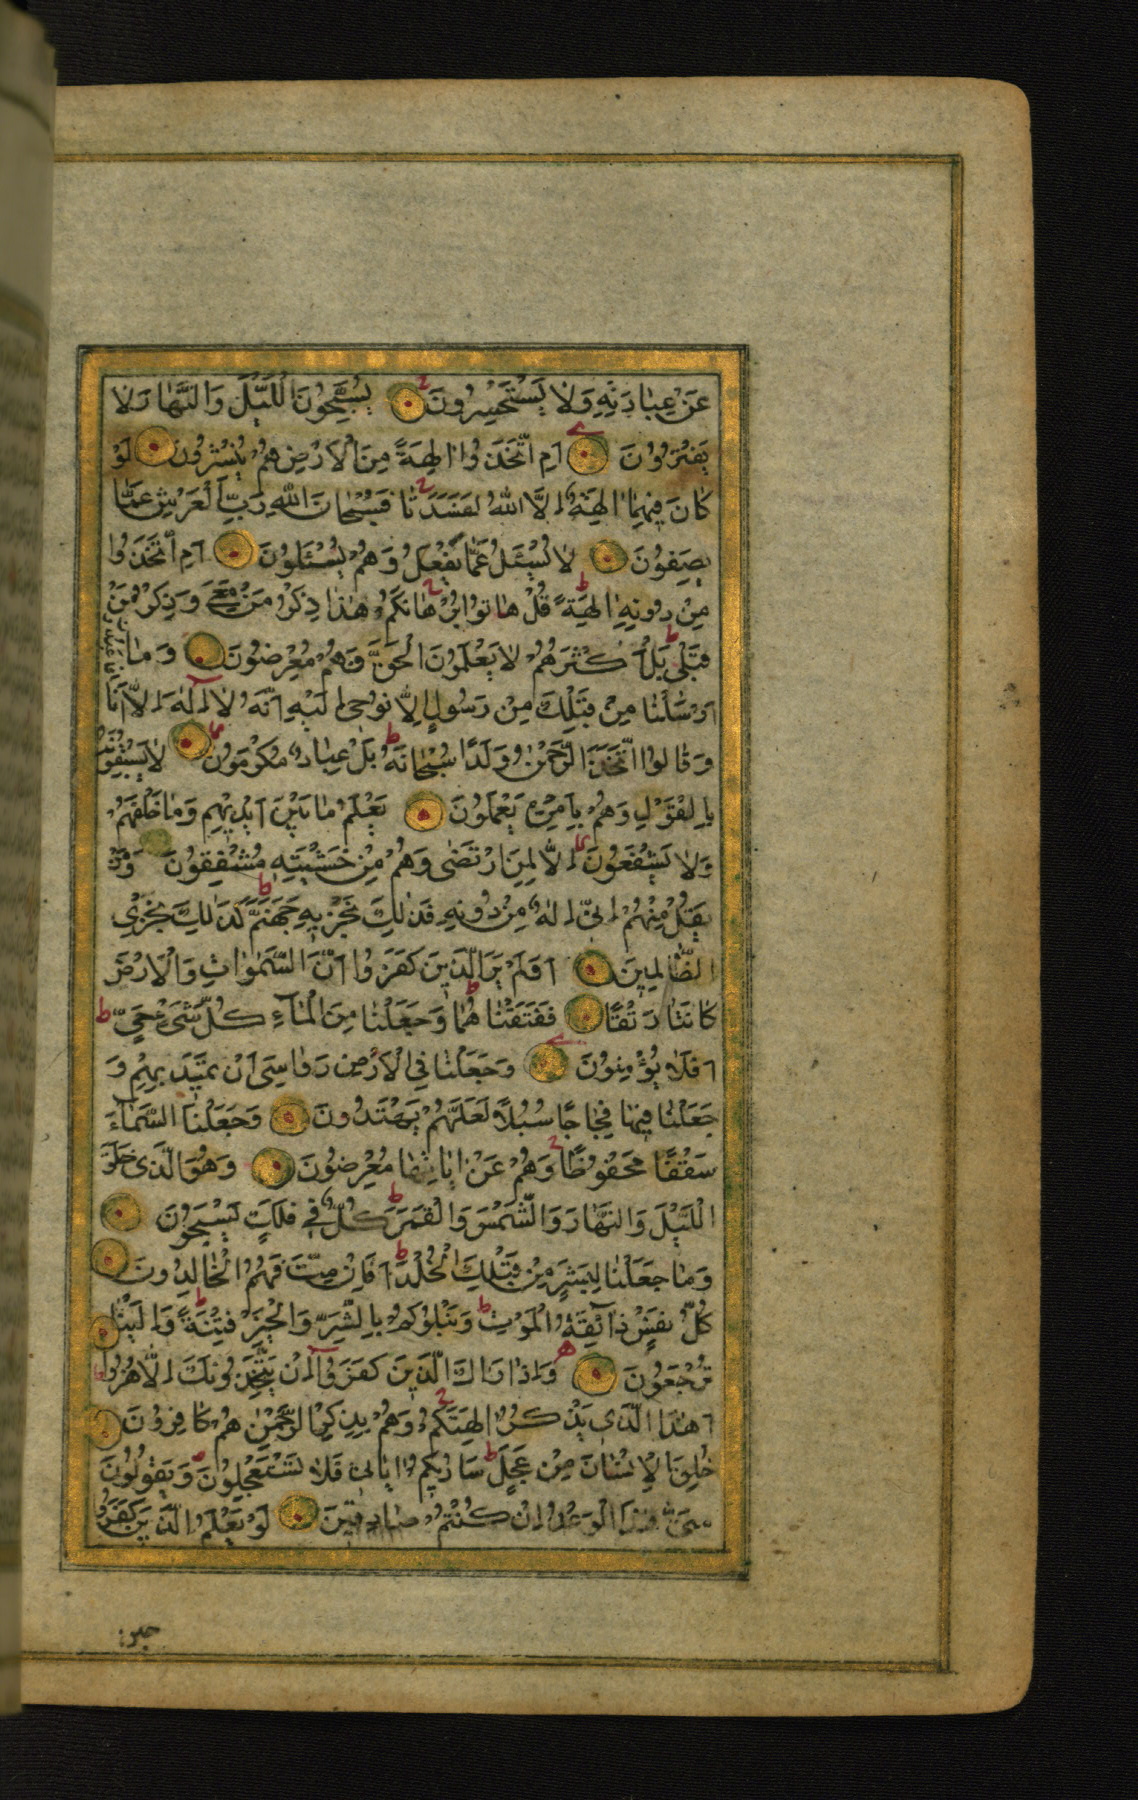 عَنْ عِبَادَتِهِ وَلَا يَسْتَحْسِرُونَ يُسَبِّحُونَ اللَّيْلَ وَالنَّهَارَ لَا
يَفْتُرُونَ أَمِ اتَّخَذُوا آلِهَةً مِنَ الْأَرْضِ هُمْ يُنْشِرُونَ لَوْ
كَانَ فِيهِمَا آلِهَةٌ إِلَّا اللَّهُ لَفَسَدَتَا فَسُبْحَانَ اللَّهِ رَبِّ الْعَرْشِ عَمَّا
يَصِفُونَ لَا يُسْئَلُ عَمَّا يَفْعَلُ وَهُمْ يُسْئَلُونَ أَمِ اتَّخَذُوا
مِنْ دُونِهِ آلِهَةً قُلْ هَاتُوا بُرْهَانَكُمْ هَذَا ذِكْرُ مَنْ مَعِيَ وَذِكْرُ مَنْ
قَبْلِي بَلْ أَكْثَرُهُمْ لَا يَعْلَمُونَ الْحَقَّ فَهُمْ مُعْرِضُونَ وَمَا
أَرْسَلْنَا مِنْ قَبْلِكَ مِنْ رَسُولٍ إِلَّا نُوحِي إِلَيْهِ أَنَّهُ لَا إِلَهَ إِلَّا أَنَا
فَاعْبُدُونِ
وَقَالُوا اتَّخَذَ الرَّحْمَنُ وَلَدًا سُبْحَانَهُ بَلْ عِبَادٌ مُكْرَمُونَ لَا يَسْبِقُونَهُ
بِالْقَوْلِ وَهُمْ بِأَمْرِهِ يَعْمَلُونَ يَعْلَمُ مَا بَيْنَ أَيْدِيهِمْ وَمَا خَلْفَهُمْ
وَلَا يَشْفَعُونَ إِلَّا لِمَنِ ارْتَضَى وَهُمْ مِنْ خَشْيَتِهِ مُشْفِقُونَ وَمَنْ
يَقُلْ مِنْهُمْ إِنِّي إِلَهٌ مِنْ دُونِهِ فَذَلِكَ نَجْزِيهِ جَهَنَّمَ كَذَلِكَ نَجْزِي
الظَّالِمِينَ أَوَلَمْ يَرَ الَّذِينَ كَفَرُوا أَنَّ السَّمَوَاتِ وَالْأَرْضَ
كَانَتَا رَتْقًا فَفَتَقْنَاهُمَا وَجَعَلْنَا مِنَ الْمَاءِ كُلَّ شَيْءٍ حَيٍّ
أَفَلَا يُؤْمِنُونَ وَجَعَلْنَا فِي الْأَرْضِ رَوَاسِيَ أَنْ تَمِيدَ بِهِمْ وَ
جَعَلْنَا فِيهَا فِجَاجًا سُبُلًا لَعَلَّهُمْ يَهْتَدُونَ وَجَعَلْنَا السَّمَاءَ
سَقْفًا مَحْفُوظًا وَهُمْ عَنْ آيَاتِهَا مُعْرِضُونَ وَهُوَ الَّذِي خَلَقَ
اللَّيْلَ وَالنَّهَارَ وَالشَّمْسَ وَالْقَمَرَ كُلٌّ فِي فَلَكٍ يَسْبَحُونَ
وَمَا جَعَلْنَا لِبَشَرٍ مِنْ قَبْلِكَ الْخُلْدَ أَفَإِنْ مِتَّ فَهُمُ الْخَالِدُونَ
كُلُّ نَفْسٍ ذَائِقَةُ الْمَوْتِ وَنَبْلُوكُمْ بِالشَّرِّ وَالْخَيْرِ فِتْنَةً وَإِلَيْنَا
تُرْجَعُونَ وَإِذَا رَآكَ الَّذِينَ كَفَرُوا إِنْ يَتَّخِذُونَكَ إِلَّا هُزُوًا
أَهَذَا الَّذِي يَذْكُرُ آلِهَتَكُمْ وَهُمْ بِذِكْرِ الرَّحْمَنِ هُمْ كَافِرُونَ
خُلِقَ الْإِنْسَانُ مِنْ عَجَلٍ سَأُرِيكُمْ آيَاتِي فَلَا تَسْتَعْجِلُونَ وَيَقُولُونَ
مَتَى هَذَا الْوَعْدُ إِنْ كُنْتُمْ صَادِقِينَ لَوْ يَعْلَمُ الَّذِينَ كَفَرُوا
حين